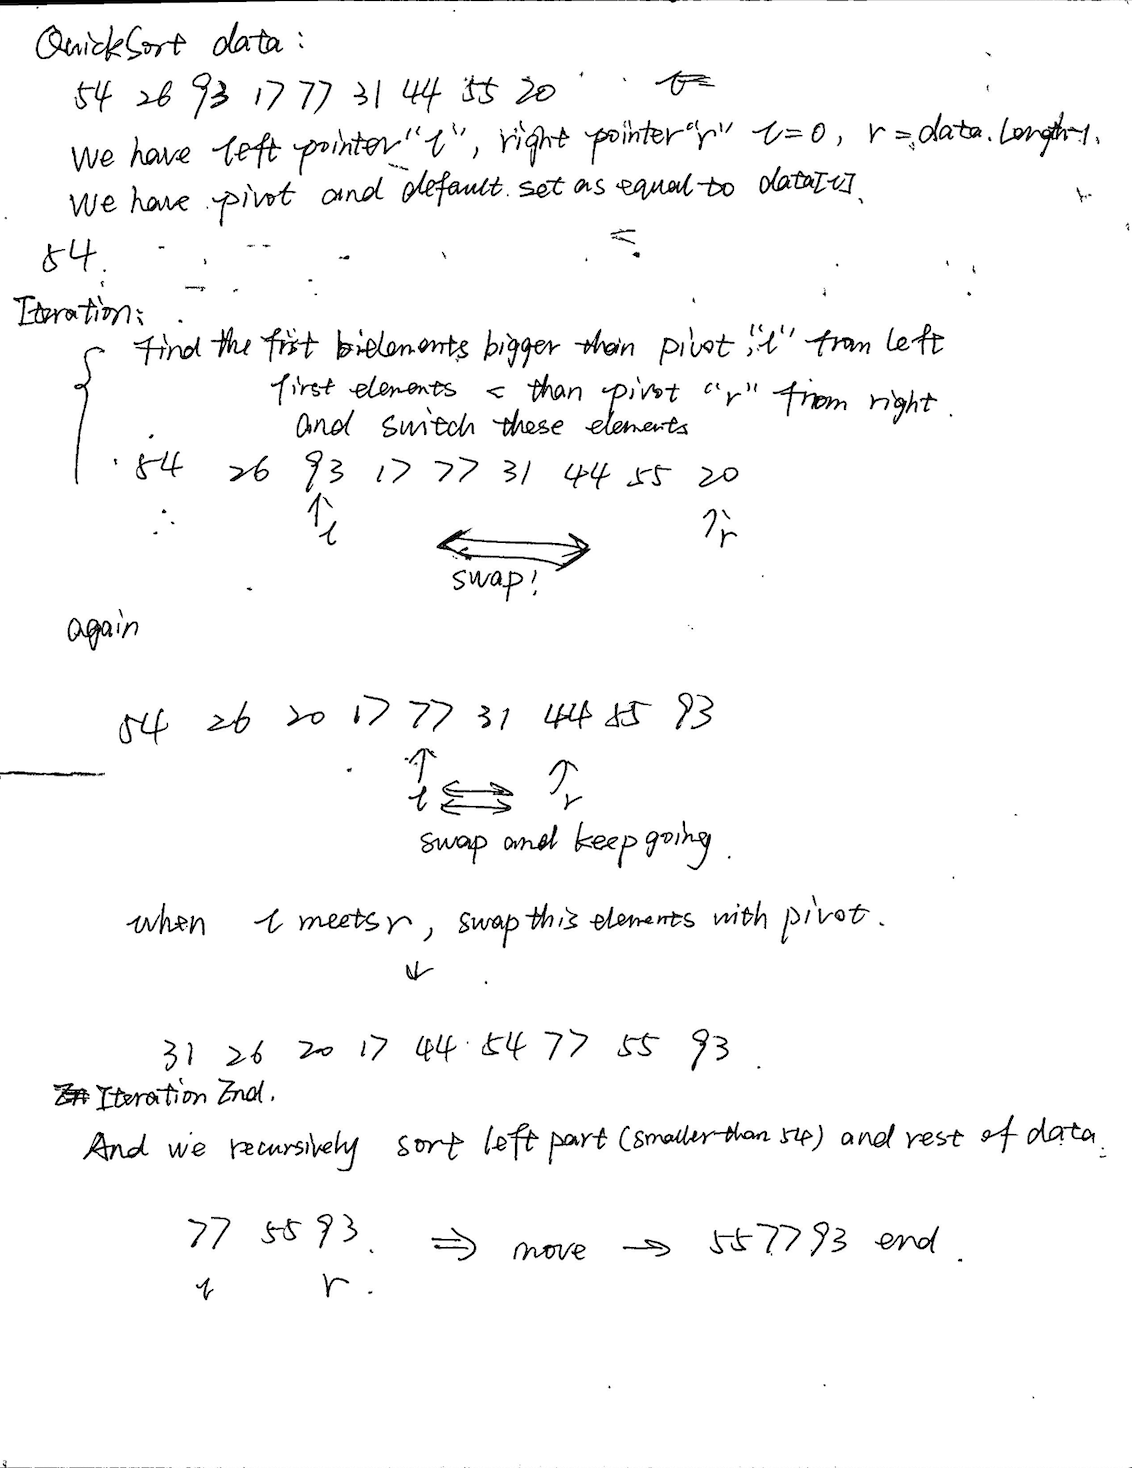 QuickSort data:
54 26 93 17 77 31 44 55 20
We have left pointer "l", right pointer "r" l=0, r=data.length-1.
We have pivot and default set as equal to data[l].
54.
Iteration:
find the fist bielements bigger than pivot, "l" from left
first elements < than pivot "r" from right.
and switch these elements
54 26 93 17 77 31 44 55 20
↑l ↑r
swap!
again
54 26 20 17 77 31 44 55 93
↑ ↑
l r
swap and keep going.
when l meets r, swap this elements with pivot.
↓
31 26 20 17 44 54 77 55 93.
Iteration End.
And we recursively sort left part (smaller than 54) and rest of data.
77 55 93. ⇒ move → 55 77 93 end.
l r.